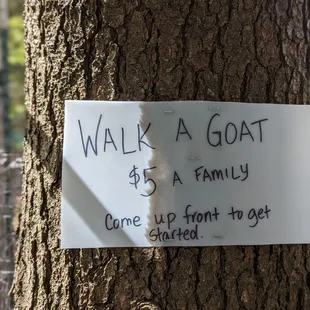 WALK A GOAT
$5 A FAMILY
Come up front to get
started.